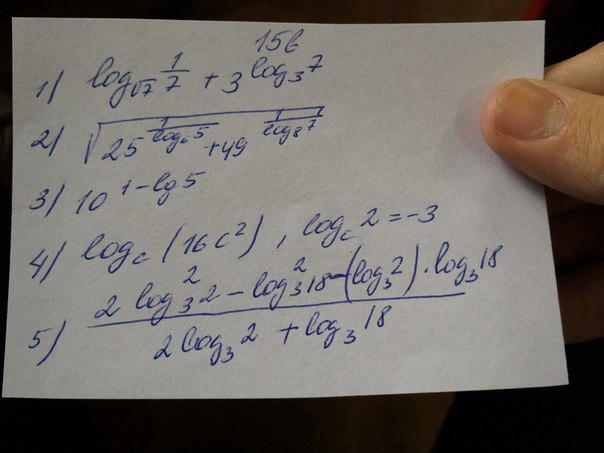 15б
1) log_{√7} 1/7 + 3^{log_3 7}
2) √(25^{1/log_6 5} + 49^{1/log_8 7})
3) 10^{1-lg5}
4) log_c (16c^2), log_c 2 = -3
5) (2 log_3^2 2 - log_3^2 18 - (log_3 2) · log_3 18) / (2 log_3 2 + log_3 18)